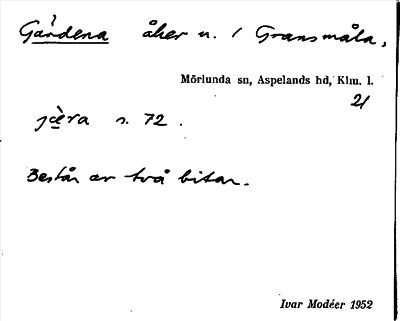 Gärdena åker u. / Gransmåla,
Mörlunda sn, Aspelands hd, Klm. l.
21
jæ̀ra s. 72.
Består av två bitar.
Ivar Modéer 1952